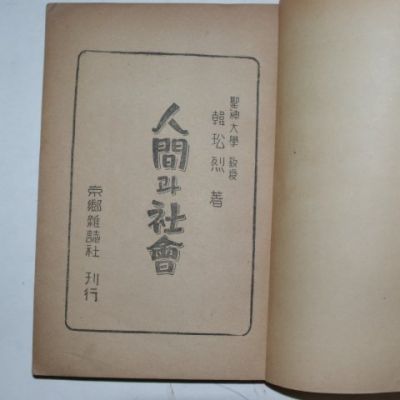 聖神大學 敎授
韓㳓烈 著
人間과 社會
京鄕雜誌社 刊行